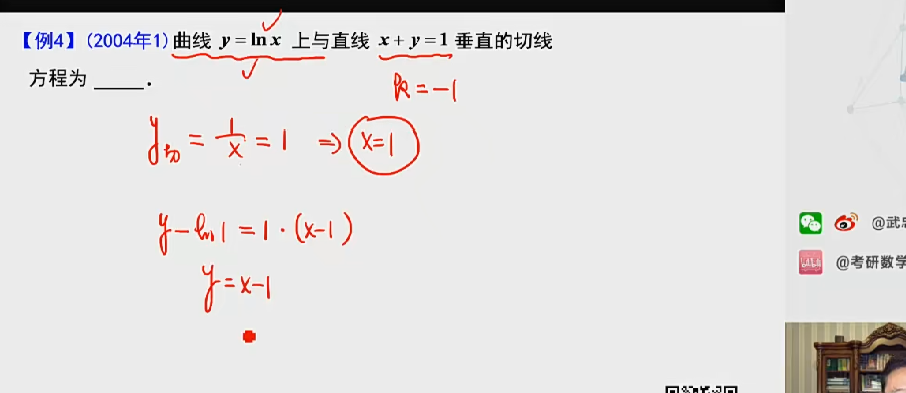 【例4】(2004年1)曲线 y = ln x 上与直线 x + y = 1 垂直的切线
方程为 _____.
k = -1
y切 = 1/x = 1 ⇒ x=1
y - ln1 = 1 · (x-1)
y = x-1
@武
@考研数学